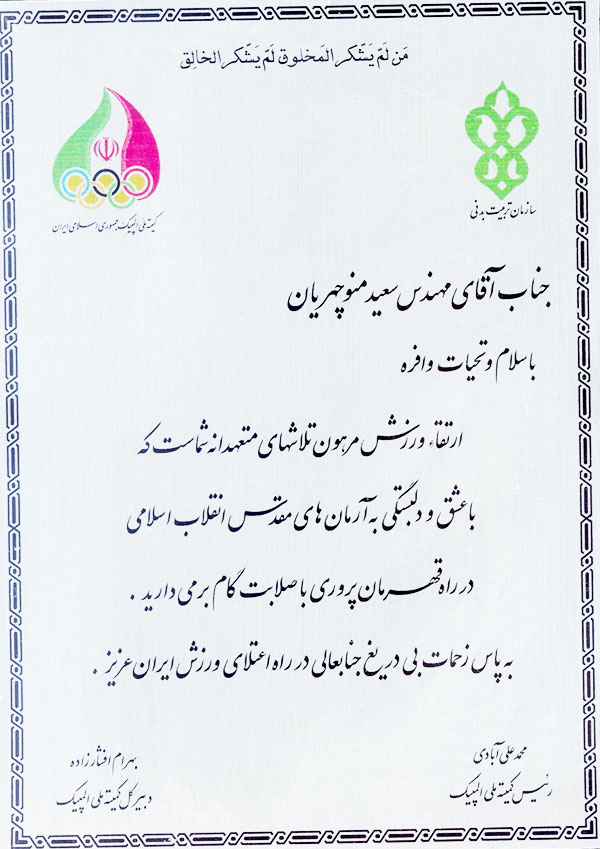 مَن لَم يَشّكر المَخلوق لَمّ يَشّكر الخالِق
سازمان تربیت بدنی
کمیته ملی المپیک جمهوری اسلامی ایران
جناب آقای مهندس سعید منوچهریان
با سلام و تحیات وافره
ارتقاء ورزش مرهون تلاشهای متعهدانه شماست که
با عشق و دلبستگی به آرمان های مقدس انقلاب اسلامی
در راه قهرمان پروری با صلابت گام برمی دارید .
به پاس زحمات بی دریغ جنابعالی در راه اعتلای ورزش ایران عزیز .
محمد علی آبادی
رئیس کمیته ملی المپیک
بهرام افشارزاده
دبیر کل کمیته ملی المپیک